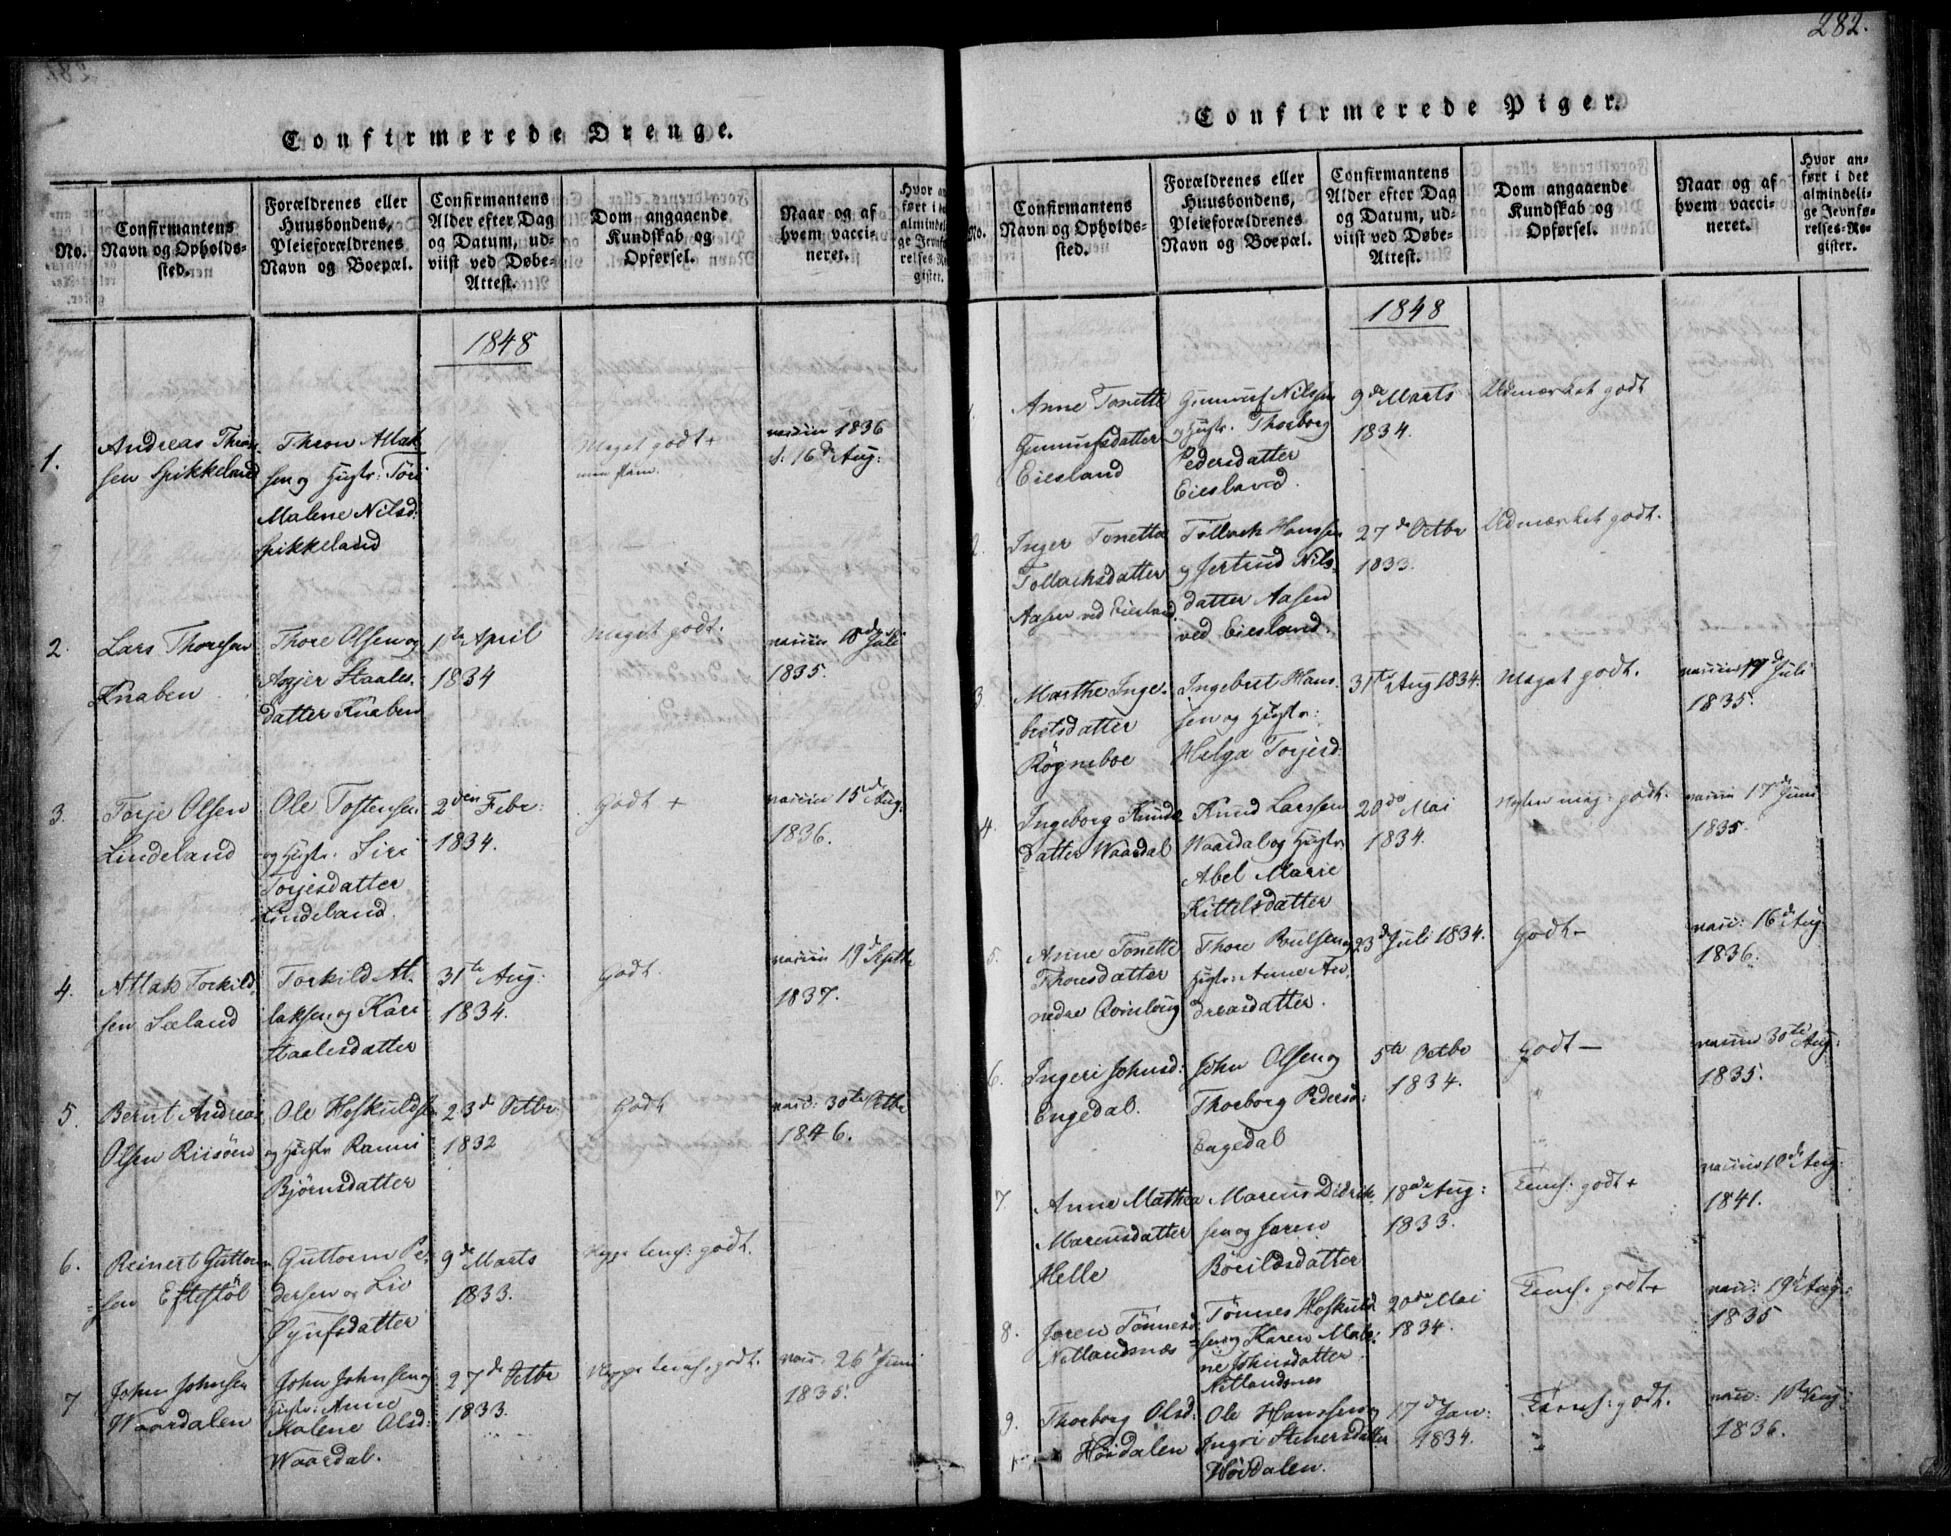 282.
Confirmerede Drenge.
No.
Confirmantens
Navn og Opholds-
sted.
Forældrenes eller
Huusbondens,
Pleieforældrenes
Navn og Boepæl.
Confirmantens
Alder efter Dag
og Datum, ud-
viist ved Døbe-
Attest.
Dom angaaende
Kundskab og
Opførsel.
Naar og af
hvem vacci-
neret.
Hvor an-
ført i det
almindeli-
ge Jevnfø-
relses-Re-
gister.
1848
1.
Andreas Thron-
sen Spikkeland
Thron Atlak
sen og Hustr: Töri
Malene Nilsd:
Spikkeland
Meget godt +
vaccin 1836
d. 16de Aug:
2.
Lars Thoresen
Knaben
Thore Olsen og
Asgjer Staales-
datter Knaben
1te April
1834
Meget godt.
vaccin 18de Juli
1835.
3.
Torje Olsen
Lindeland
Ole Tostensen
og Hustr: Siri
Torjesdatter
Lindeland.
2den Febr:
1834.
Godt +
vaccin 15de Aug:
1836.
4.
Atlak Torkild-
sen Sæland
Torkild At-
laksen og Kari
Staalesdatter
31te Aug:
1834.
Godt.
vaccin 19de Septbr
1837.
5.
Bernt Andreas
Olsen Riisöen
Ole Hoskuldsen
og Hustr Ranni
Björnsdatter
23de Octbr
1832
Godt
vacc: 30te Octbr
1846.
6.
Reinert Guttorm-
sen Eftestöl
Guttorm Pe-
dersen og Liv
Öynfsdatter
9de Marts
1833.
Hygge temf: godt.
7
John Johnsen
Waardalen
John Johnsen og
Hustr: Anne
Malene Olsd:
Waardal.
27de Octbr
1833.
temf: godt.
vacc: 26de Juni
1835.
Confirmerede Piger.
No.
Confirmantens
Navn og Opholds-
sted.
Forældrenes eller
Huusbondens,
Pleieforældrenes
Navn og Boepæl.
Confirmantens
Alder efter Dag
og Datum, ud-
viist ved Døbe-
Attest.
Dom angaaende
Kundskab og
Opførsel.
Naar og af
hvem vacci-
neret.
Hvor an-
ført i det
almindeli-
ge Jevnfø-
relses-Re-
gister.
1848
1.
Anne Tonette
Gunnufsdatter
Eiesland
Gunnuf Nilssen
og Hustr. Thorborg
Pedersdatter
Eiesland.
9de Marts
1834.
Udmærket godt
2.
Inger Tonette
Tollachsdatter
Aasen ved Eiesland
Tollach Hanssen
og Jertrud Nils-
datter Aasen
ved Eiesland.
27de Octbr
1833.
Udmærket godt.
3.
Marthe Inge-
bretsdatter
Rögneboe
Ingebret Hans-
sen og Hustr:
Helga Torjesd:
31te Aug 1834.
Meget godt.
vaccin 19de Juli
1835.
4.
Ingeborg Knuds-
datter Waardal
Knud Larssen
Waardal og Hustr:
Abel Marie
Kittelsdatter
20de Mai
1834.
Næsten meg: godt.
vaccin 17de Juni
1835.
5.
Anne Tonette
Thoresdatter
nedre
Thore Poulsen og
Hustr: Anne An-
dreasdatter.
23de Juli 1834.
Godt -
vacc: 16de Aug
1836.
6.
Ingeri Johnsd:
Engedal.
John Olsen og
Thorborg Pedersd:
Engedal
5te Octbr
1834.
Godt —
vaccin 30te Aug:
1835.
7.
Anne Mathea
Marcusdatter
Helle
Marcus Didrik-
sen og Joren
Böeildsdatter
18de Aug:
1833.
Temf: godt +
vaccin 18de Aug:
1841.
8.
Joren Tönnesd:
Netlandsnæs
Tönnes Hoskuld
sen og Karen Male-
ne Johnsdatter
Netlandsnes
20de Mai
1834.
Temf. godt +
vacc: 19de Aug:
1835
9.
Thorborg Olsd:
Höidalen
Ole Hanssen og
Ingri Stenersdatter
Höidalen.
17de Jan:
1834.
Temf: godt.
vacc: 18de Aug:
1836.